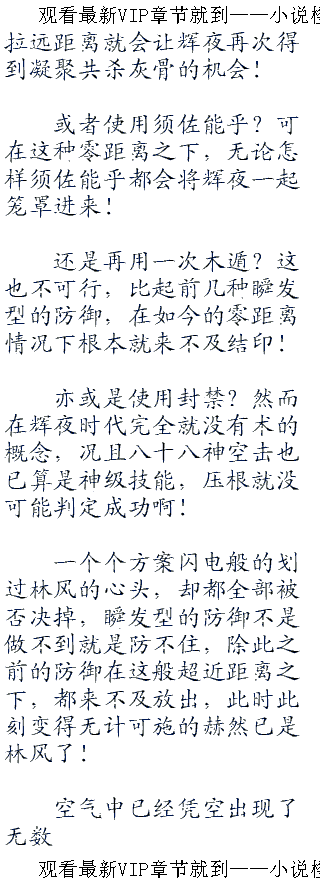 观看最新VIP章节就到——小说检
拉远距离就会让辉夜再次得
到凝聚共杀灰骨的机会！
或者使用须佐能乎？可
在这种零距离之下，无论怎
样须佐能乎都会将辉夜一起
笼罩进来！
还是再用一次木遁？这
也不可行，比起前几种瞬发
型的防御，在如今的零距离
情况下根本就来不及结印！
亦或是使用封禁？然而
在辉夜时代完全就没有术的
概念，况且八十八神空击也
已算是神级技能，压根就没
可能判定成功啊！
一个个方案闪电般的划
过林风的心头，却都全部被
否决掉，瞬发型的防御不是
做不到就是防不住，除此之
前的防御在这般超近距离之
下，都来不及放出，此时此
刻变得无计可施的赫然已是
林风了！
空气中已经凭空出现了
无数
观看最新VIP章节就到——小说检